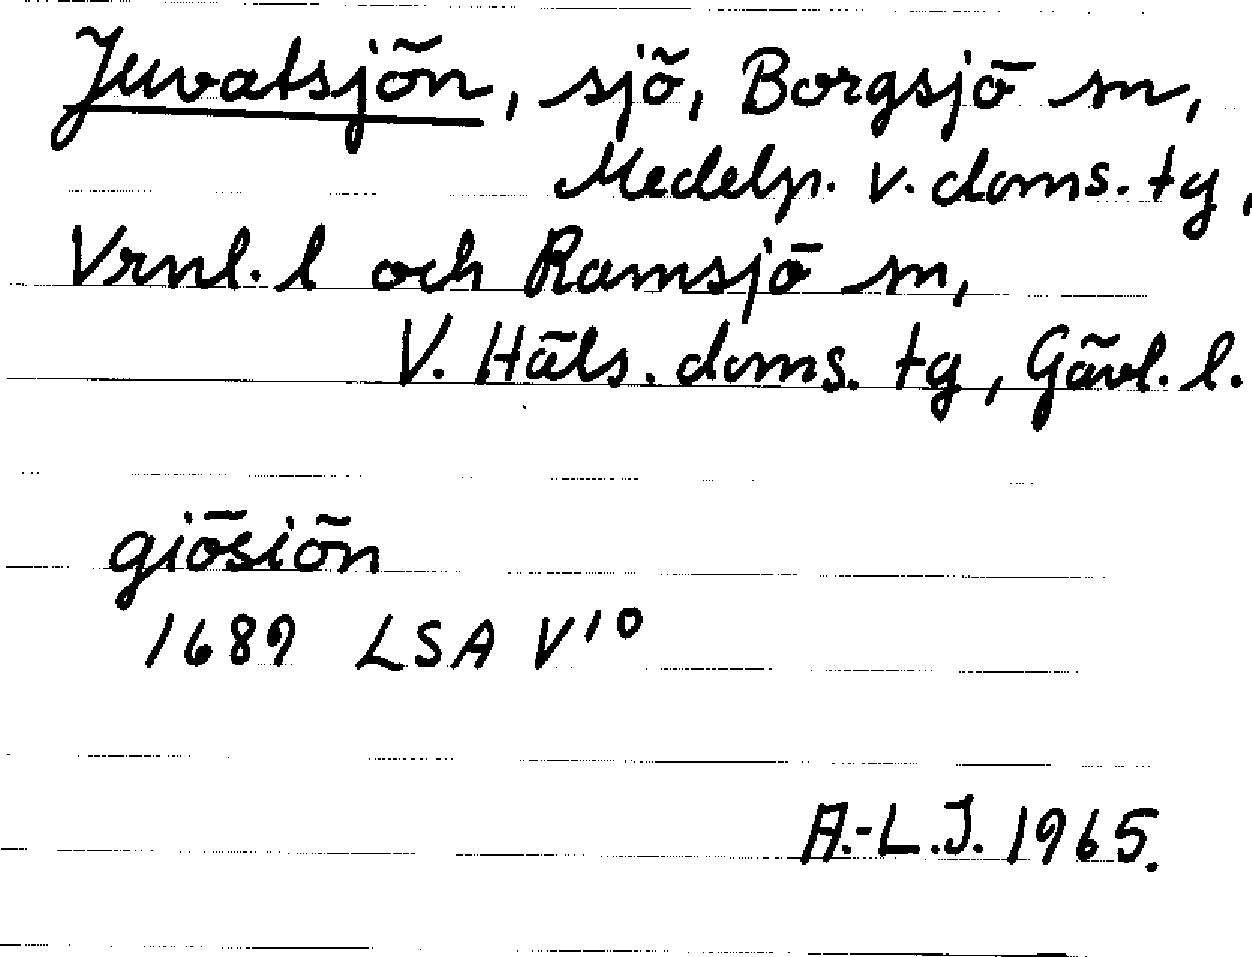 Juvatsjön, sjö, Borgsjö sn,
Medelp. v. doms. tg,
Vrnl. l och Ramsjö sn,
V. Häls. doms. tg, Gävl. l.
giösiön
1689 LSA V10
A.-L.J. 1965.